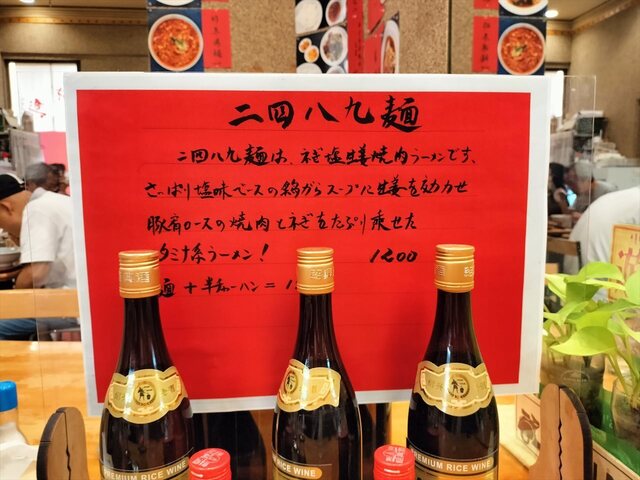 二四八九麺
二四八九麺は、ネギ塩生姜焼肉ラーメンです、
さっぱり塩味ベースの鶏がらスープに生姜を効かせ
豚肩ロースの焼肉とネギをたっぷり乗せた
タミナ系ラーメン! 1200
麺+半チャーハン=1
PREMIUM RICE WINE
RICE WINE
PREMIUM RICE WINE